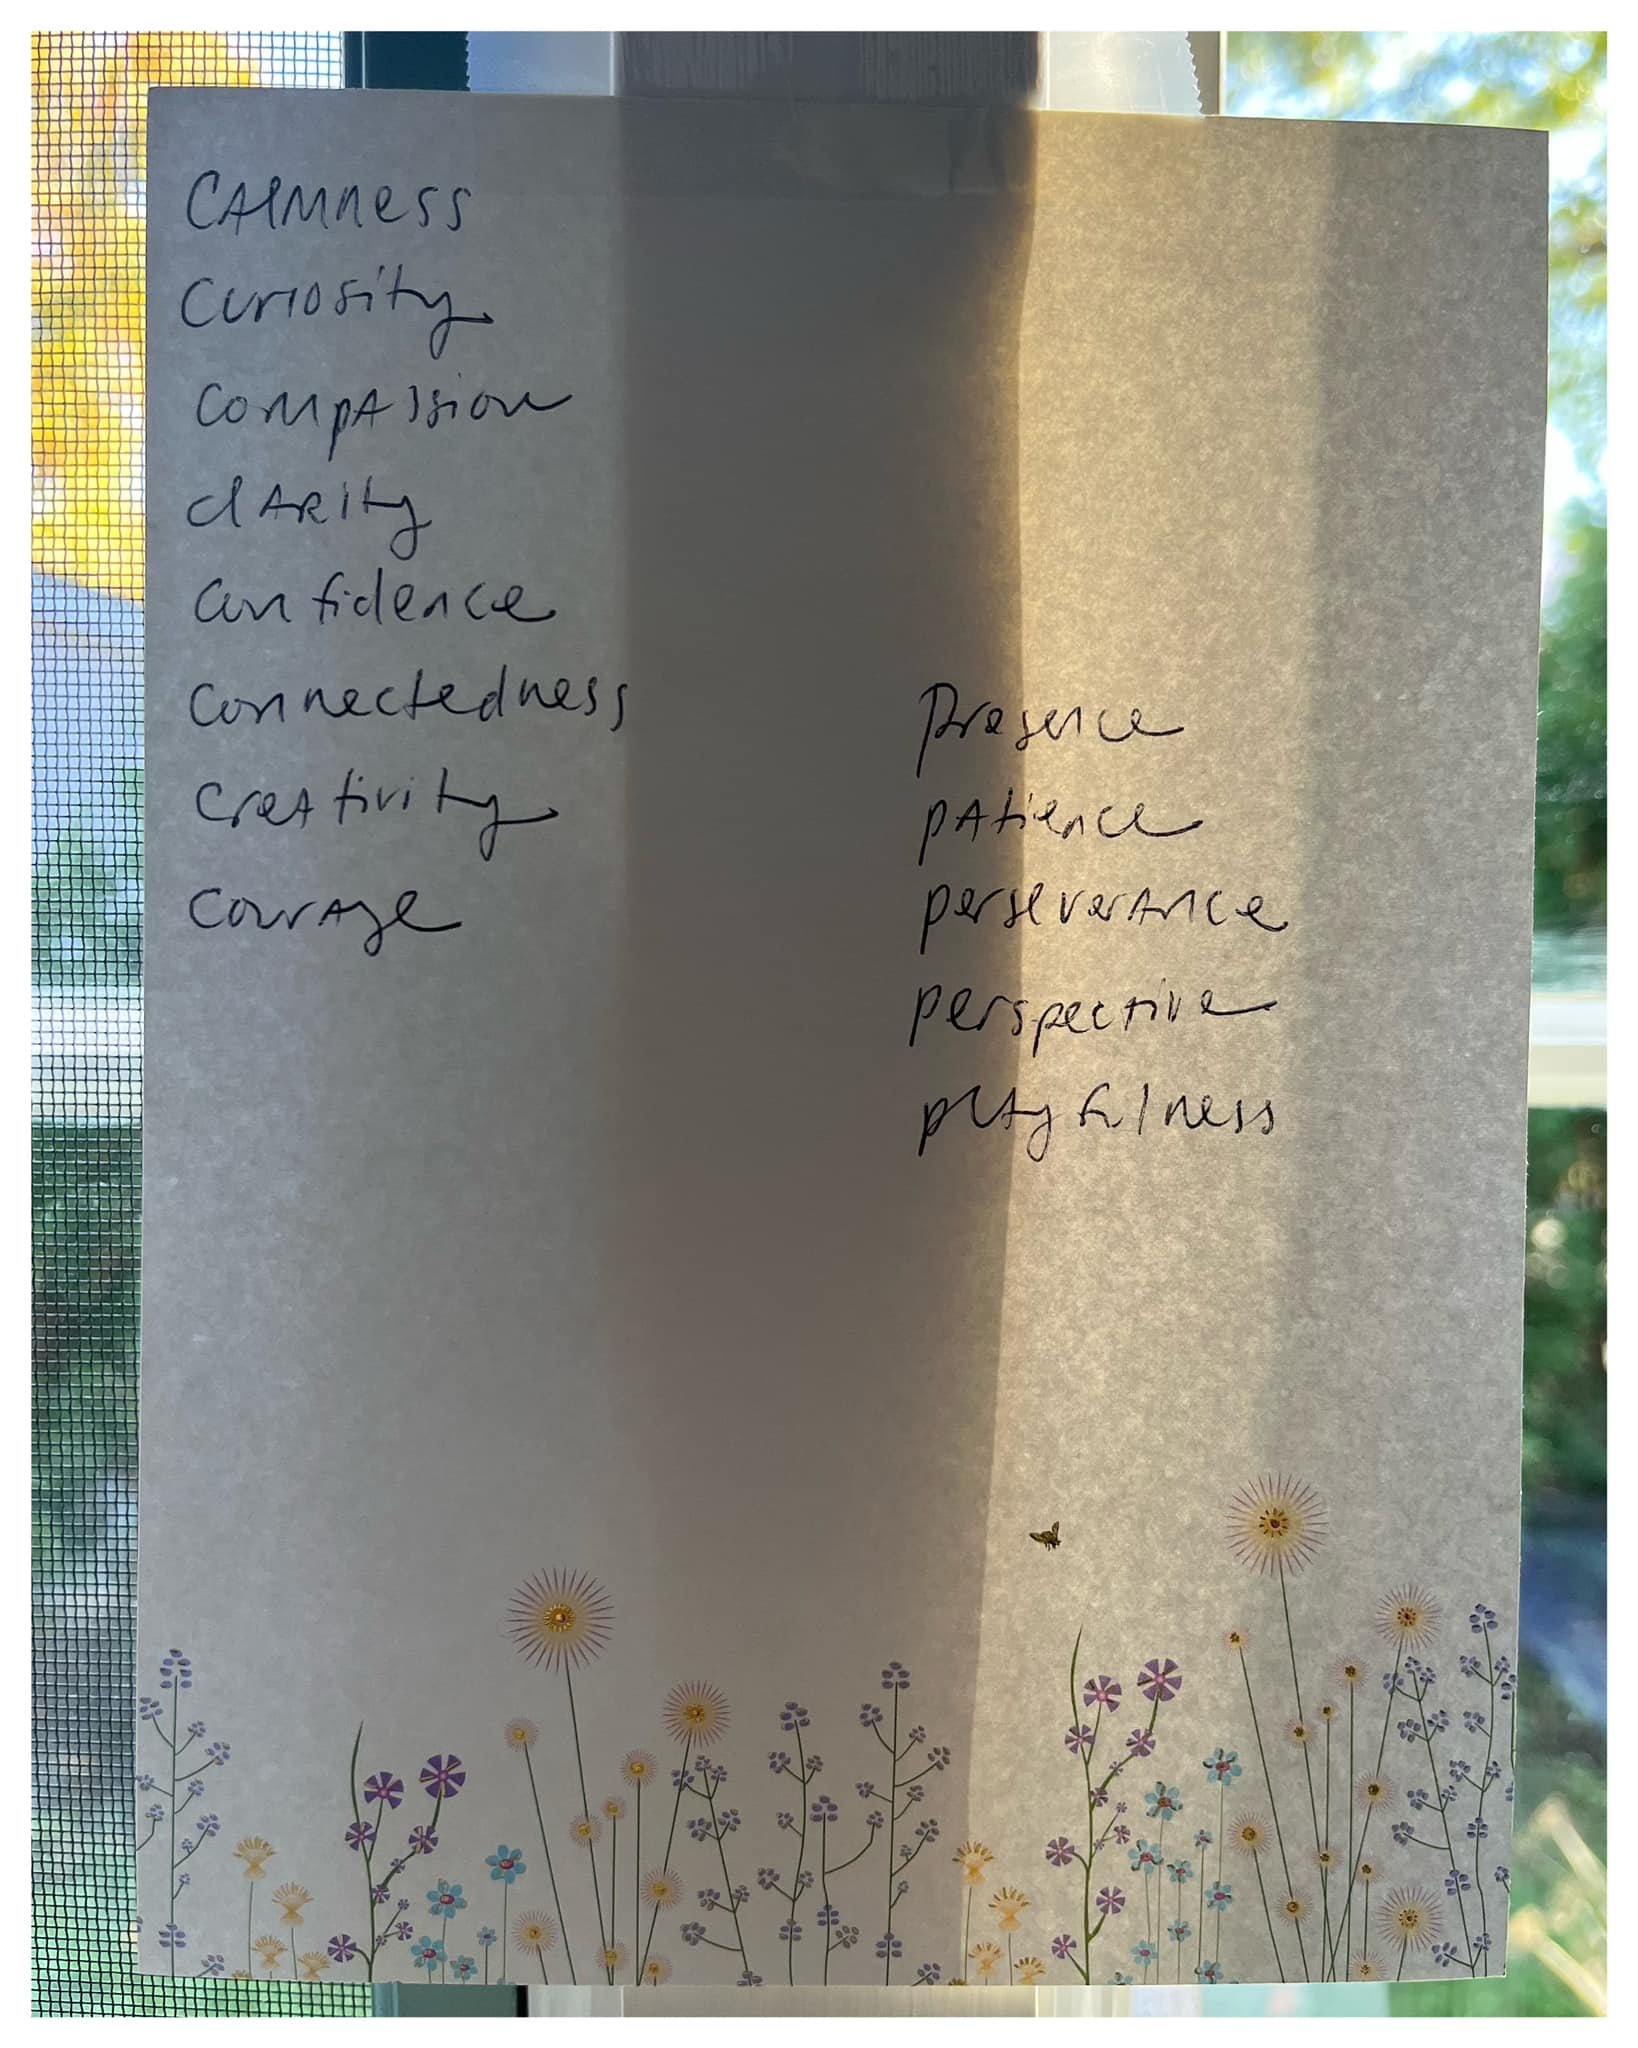 CAlMness
Curiosity
CompAssion
clARity
Confidence
Connectedness
CreAtivity
CourAge
Presence
pAtience
perseverAnce
perspective
plAyfulness